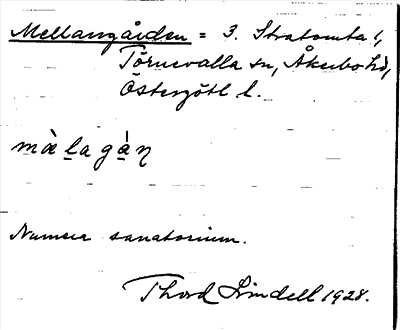 Mellangården = 3. Stratomta 1,
Törnevalla sn, Åkerbo hd,
Östergötl l.
mälagán
Numera sanatorium.
Thord Lindell 1928.